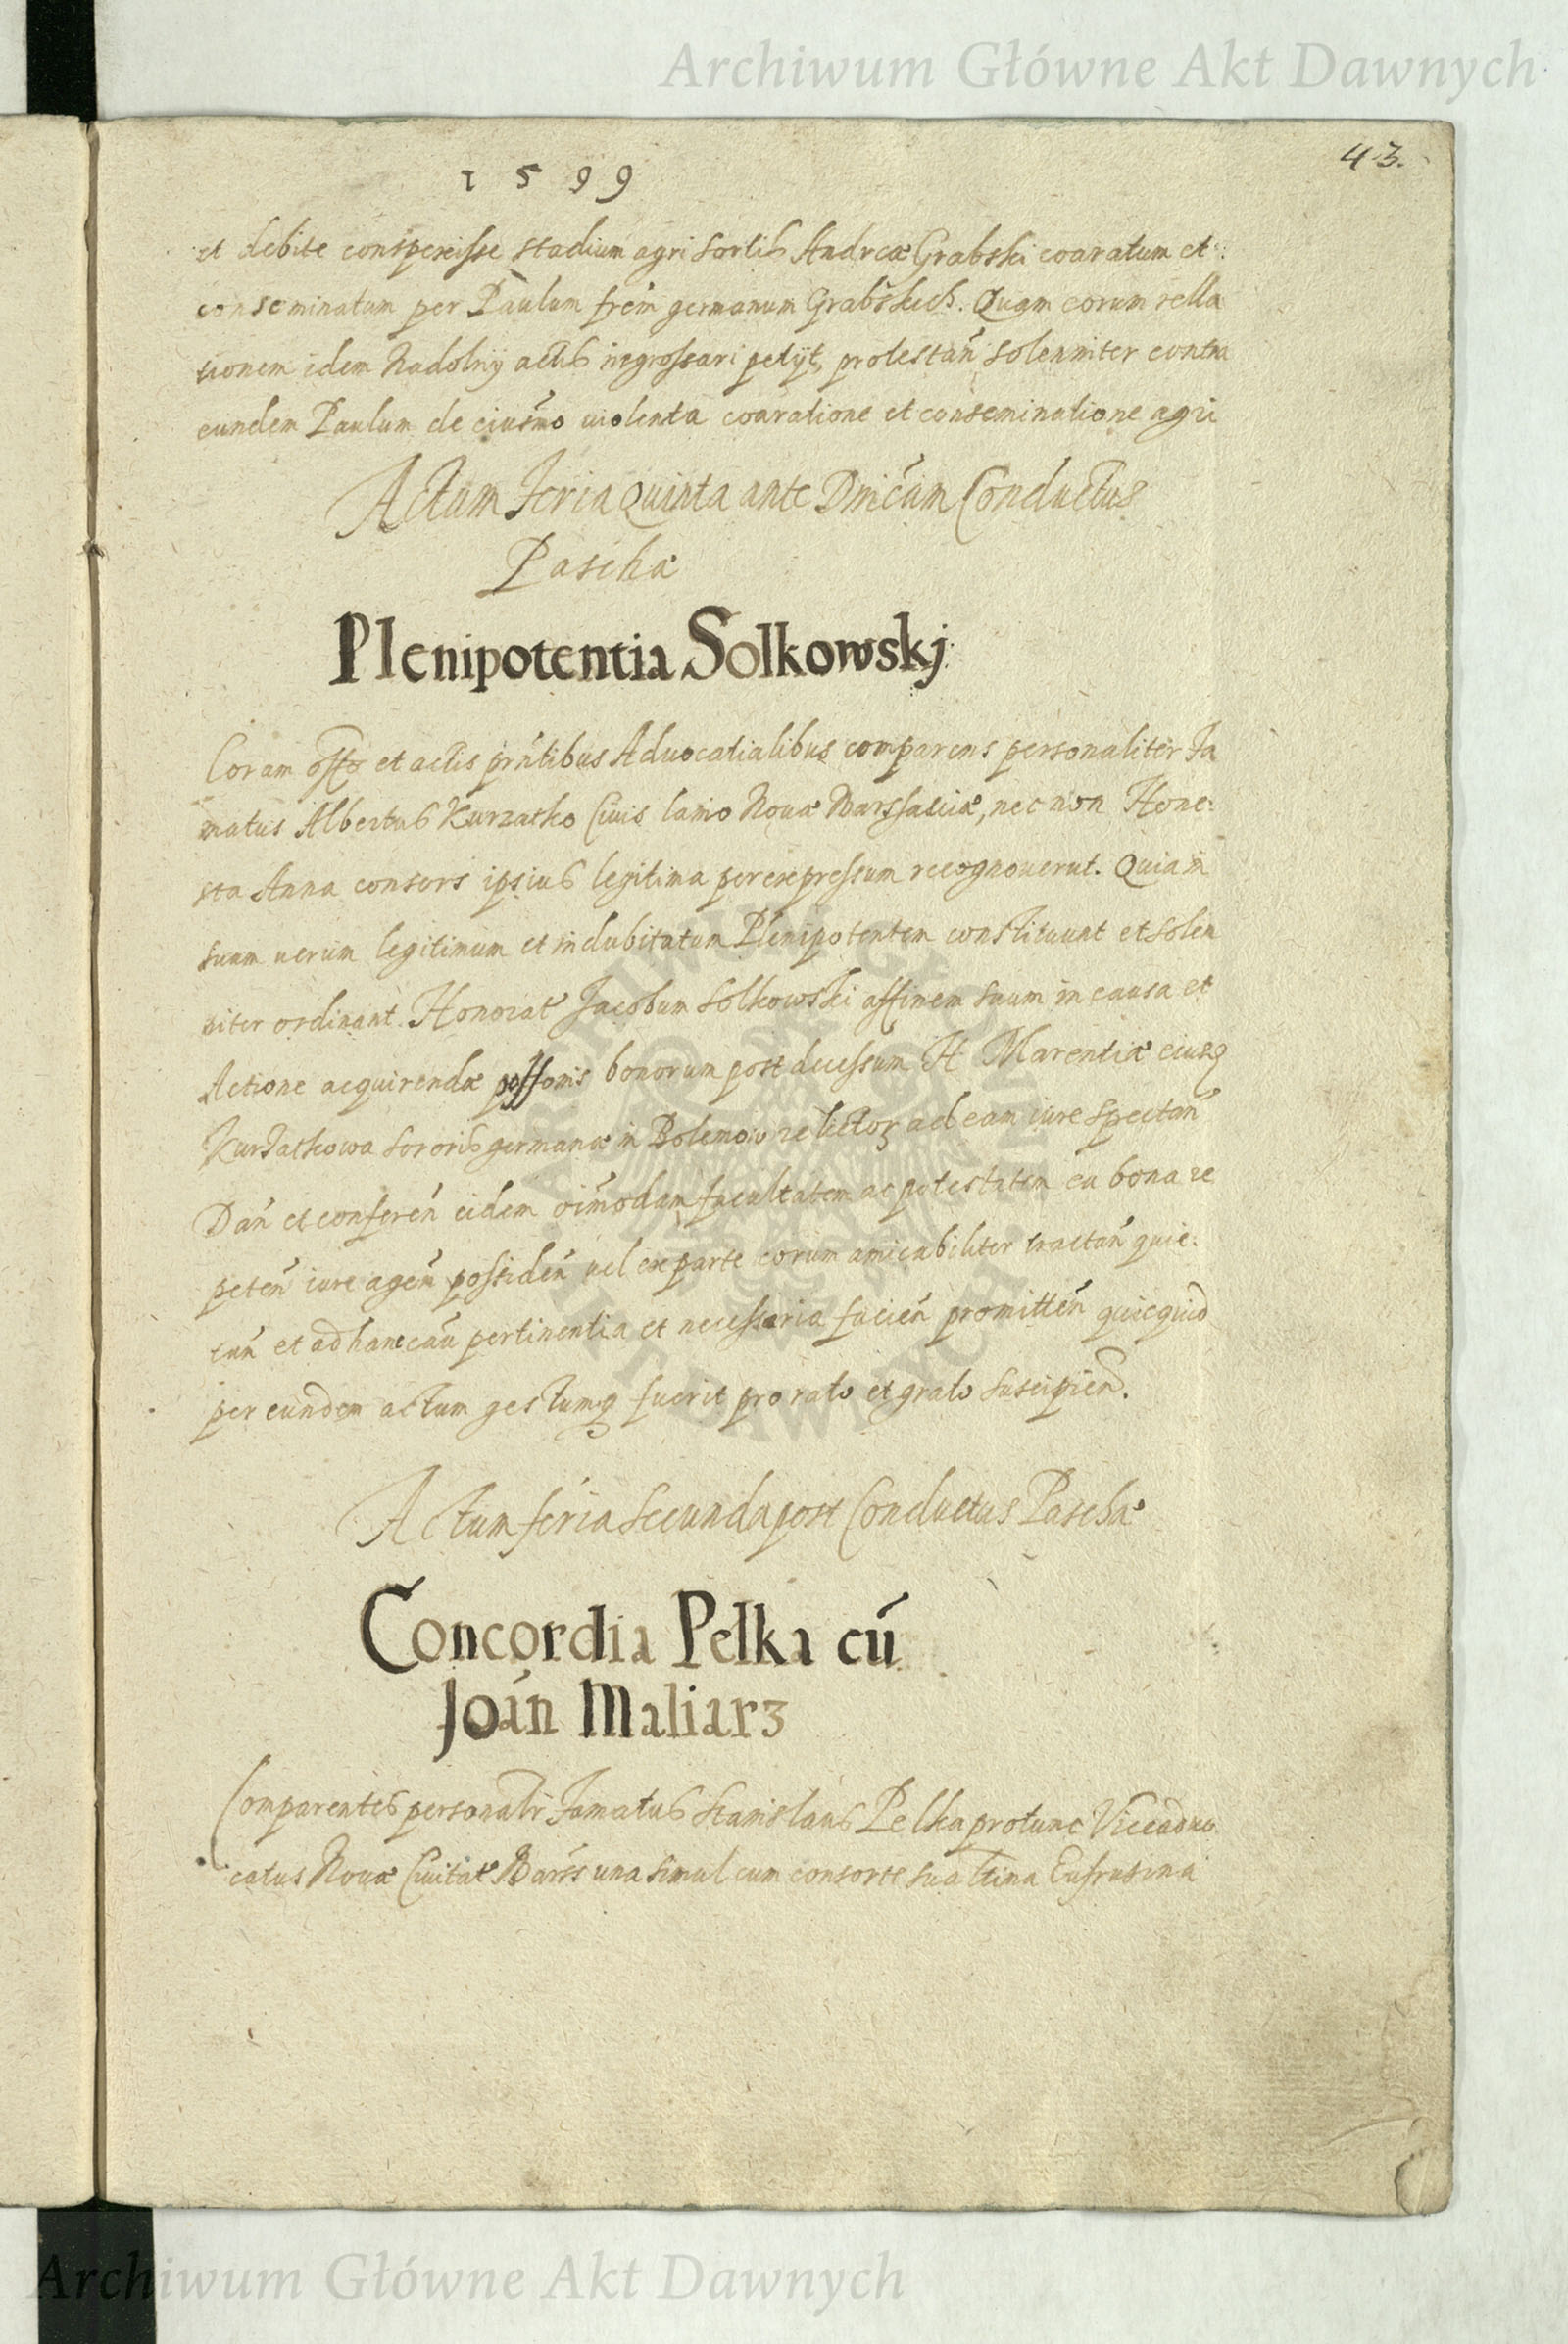 Archiwum Główne Akt Dawnych
43.
1599
et debite conspexisse stadium agri sortis Andreæ Grabski coaratum et
conseminatum per Paulum frem̃ germanum Grabskich. Quam eorum rella
tionem idem Nadolny actis ingrossari petÿt, protestan̄ solenniter contra
eundem Paulum de eiusm̃o uiolenta coaratione et conseminatione agri
Actum Feria Quinta ante Dnicam̃ Conductus
Paschæ
Plenipotentia Solkowskj
Coram offo et actis prn̄tibus Aduocatialibus comparens personaliter Fa
matus Albertus Kurzatko Ciuis lanio Nouæ Warssauiæ, nec non Hone:
sta Anna consors ipsius legitima per expressum recognouerut. Quia in
suum uerum legitimum et indubitatum Plenipotentem constituunt et solen
niter ordinant Honorat Jacobum Solkowski affinem suum in causa et
Actione acquirendæ possonis bonorum post decessum H Marentiæ eiusq
Kurzatkowa sororis germanæ in Bolemow relictoꝝ ad eam iure spectan̄
Dan̄ et conferen̄ eidem oim̃odam facultatem ac potestatem ea bona re
peten̄ iure agen̄ possiden̄ uel ex parte eorum amicabiliter tractan̄ quie:
tan̄ et ad hanc cau̅ pertinentia et necessaria facien̄ promitten̄ quicquid
per eundem actum gestumq fuerit pro rato et grato suscipien̄d.
Actum feria Secunda post Conductus Paschæ
Concordia Pelka cú
Joán Maliarz
Comparentes personalr Famatus Stanislaus Pelka protunc Viceaduo
catus Nouæ Ciuitat Warss una simul cum consorte sua ltima Eufrusina
Archiwum Główne Akt Dawnych